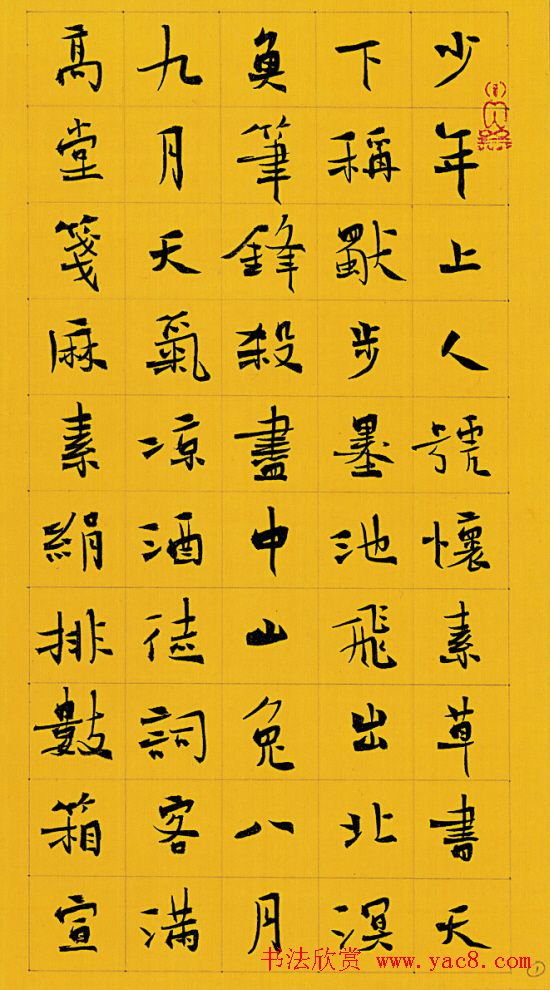 少年上人號懷素草書天
下稱獨步墨池飛出北溟
魚筆鋒殺盡中山兔八月
九月天氣涼酒徒詞客滿
高堂箋麻素絹排數箱宣
书法欣赏 www.yac8.com
①